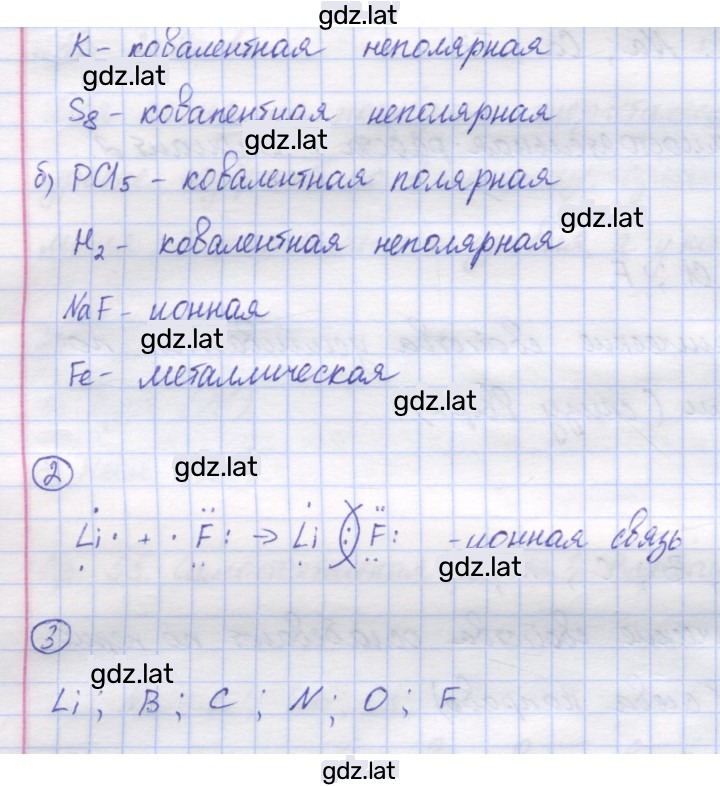 gdz.lat
K - ковалентная неполярная
gdz.lat
S8 - ковалентная неполярная
gdz.lat
б) PCl5 - ковалентная полярная
gdz.lat
H2 - ковалентная неполярная
NaF - ионная
gdz.lat
Fe - металлическая
gdz.lat
2
gdz.lat
Li· + ·F: → Li (:) F: - ионная связь
gdz.lat
3
gdz.lat
Li; B; C; N; O; F
gdz.lat